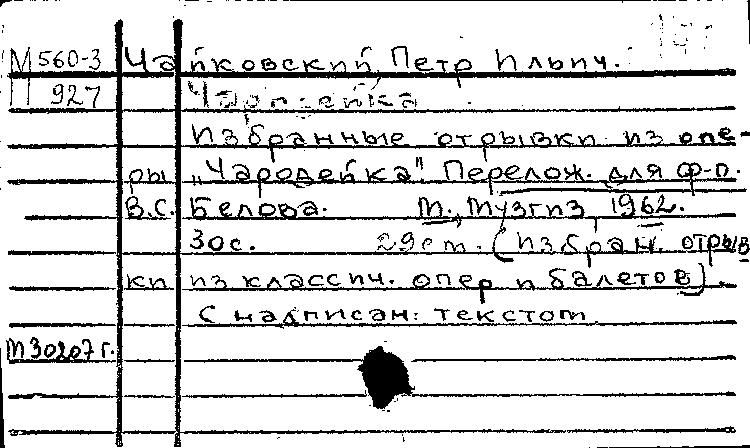 М 560-3 Чайковский, Петр Ильич.
927 Чародейка
Избранные отрывки из опе-
ры „Чародейка". Перелож. для ф-п.
В.С. Белова. М., Музгиз, 1962.
30с. 29см. (Избран. отрыв
ки из классич. опер и балетов).
С надписан. текстом.
М30207г.